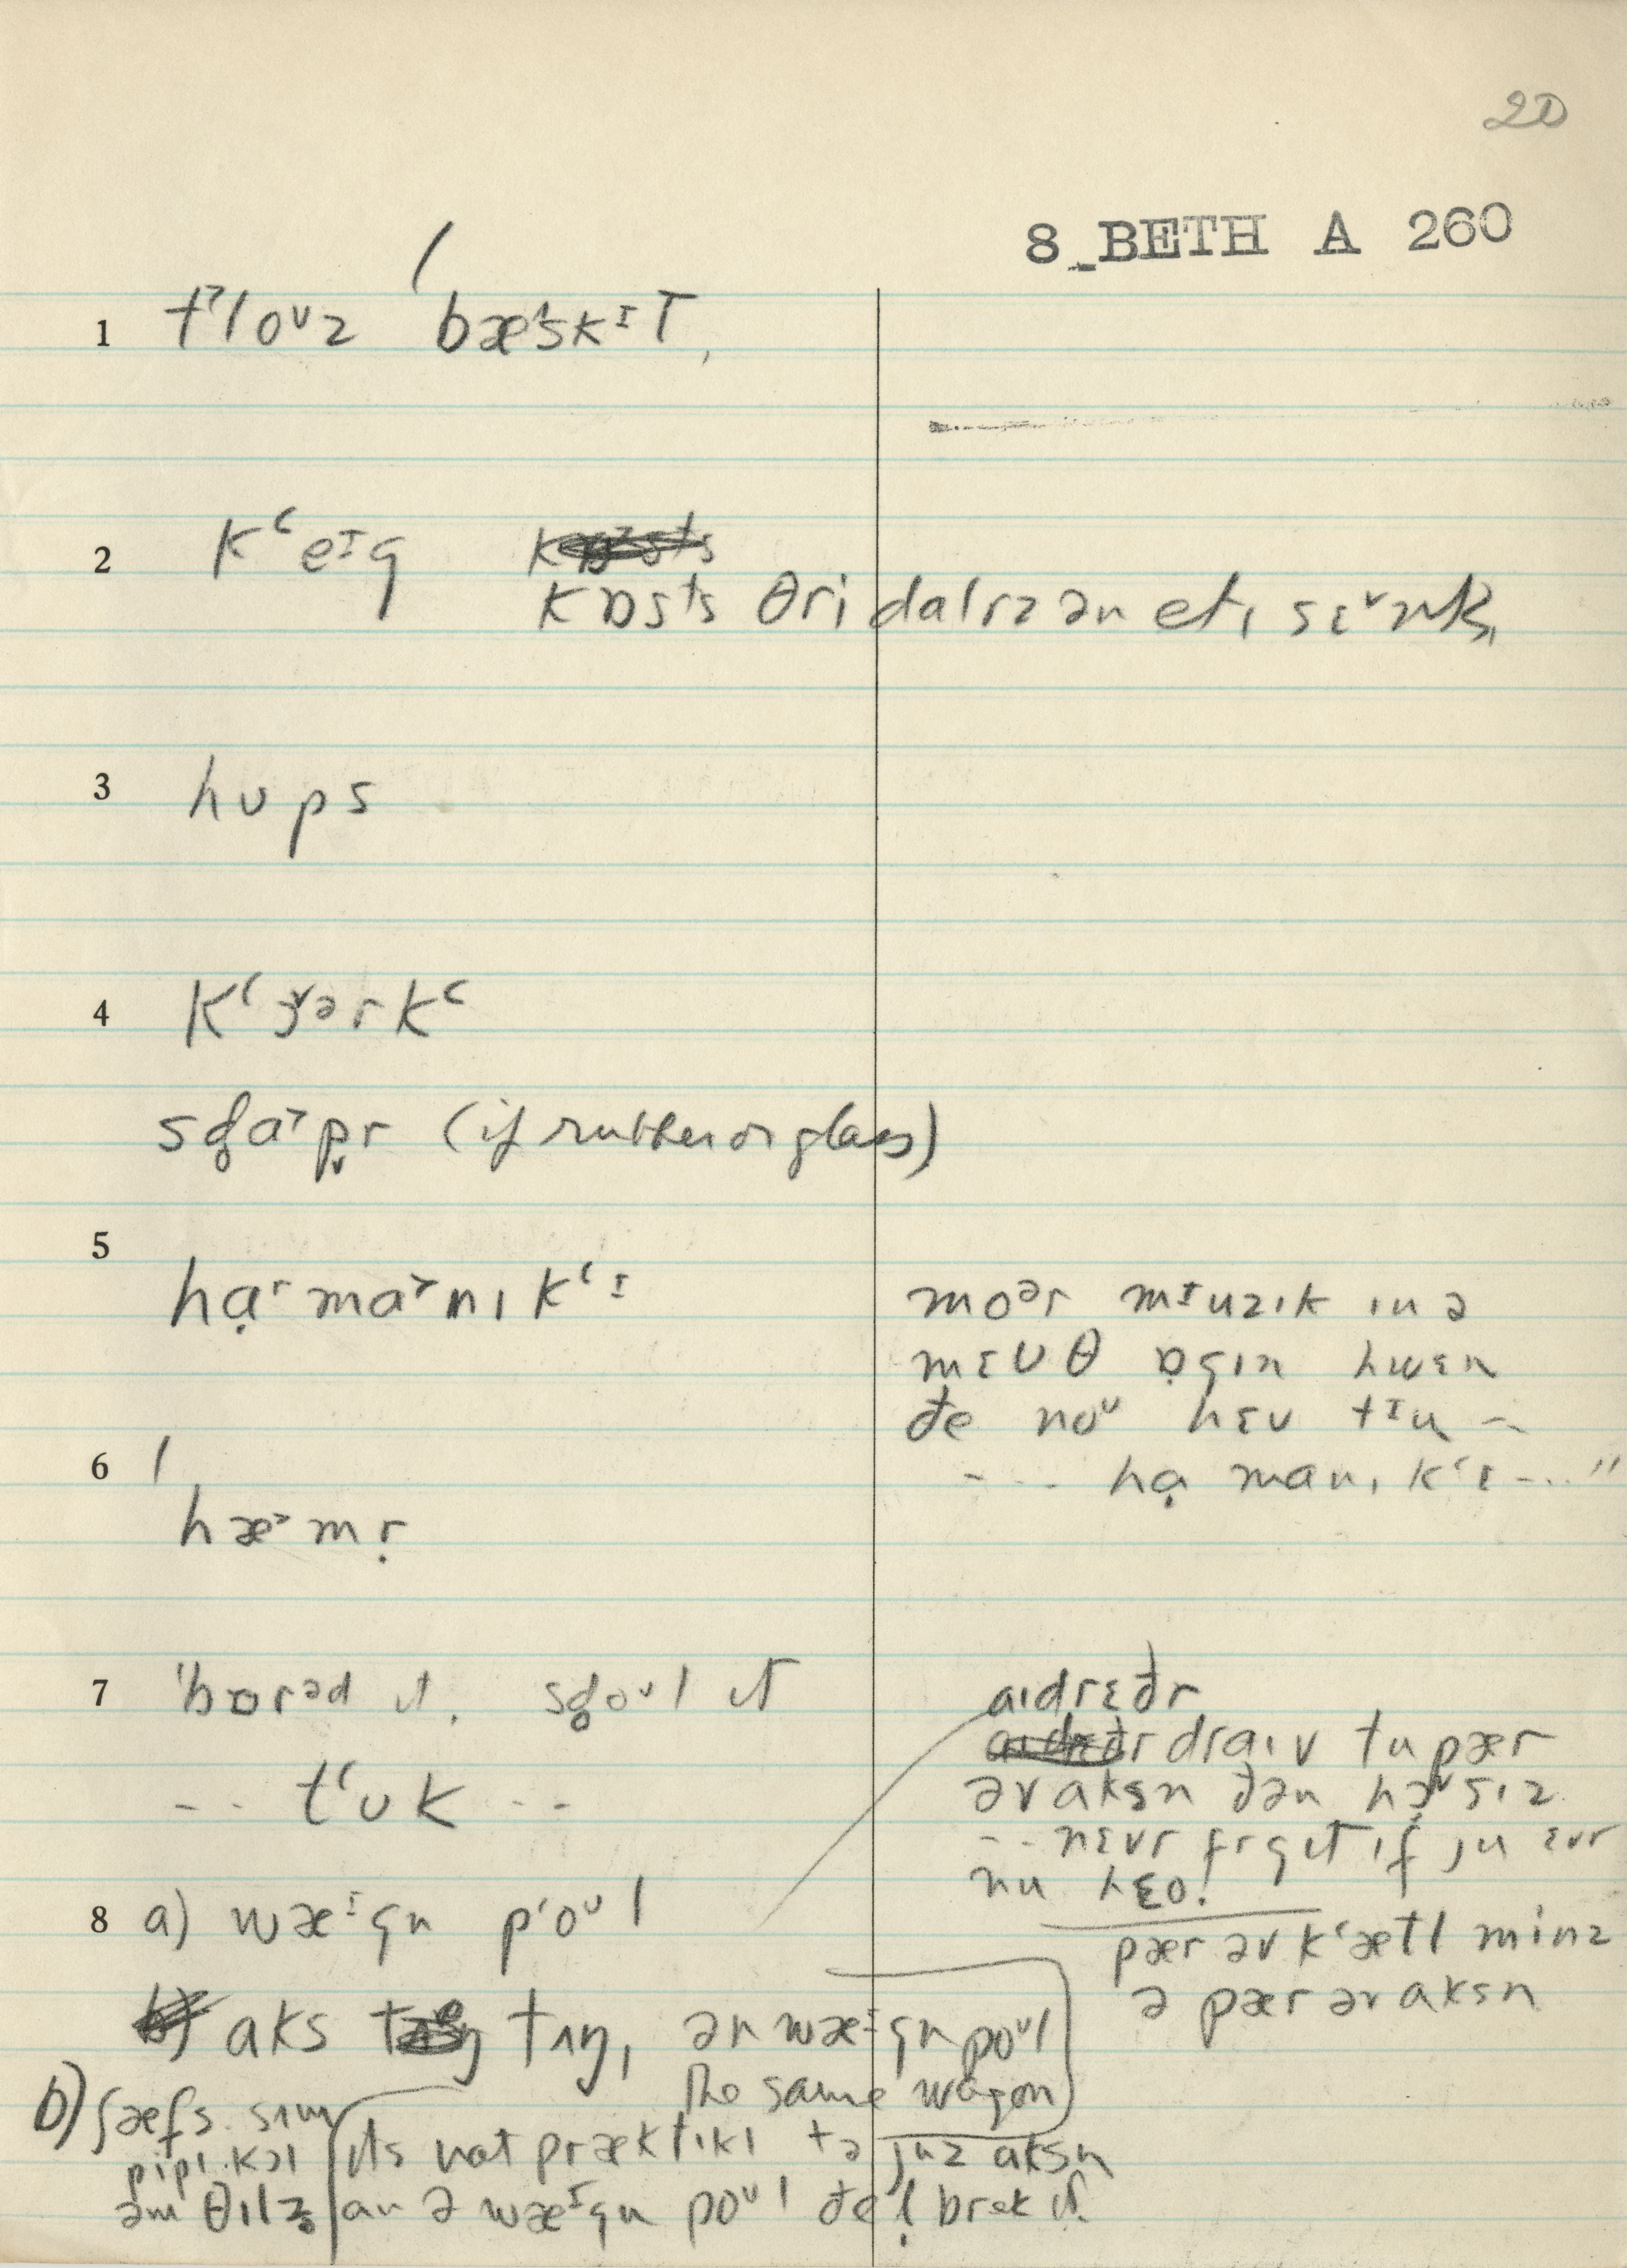 20
8 BETH A 260
1 t˃loᶷz bæ˃skᶦT,
2 kʻeᶦg
kɒsts θri dalrz ən eti sɛ˅nks
3 hʊps
4 kʻɜ˅ərkʻ
sg̥a˃pr (if rubber or glass)
5 hạ˂ma˃nıkʻɪ
moᵊr mᶦuzık ın ə
mɛʊθ ɒgın hwɛn
đe noᶷ hɛʊ tᶦu --
--- hạ manıkʻɪ ---"
6 hæ˃mṛ
7 'bɒrᵊd ıt, sg̥oᶷl ıt
-- tʻʊk --
aıdrɛđr
draıv tu pær
əv aksn đən hɔ˅sız
-- nɛvr frgɪt ıf ju ɛvr
pær əv kʻætl minz
ə pær əv aksn
8 a) wæᶦgn pʻoᶷl
aks tʌŋ, ər wæᶦgn poᶷl
the same wagon
b) ʃæfs. sʌm
pipı kɔl
əm θılz̥
ıts nat præktıkl tə juz aksn
an ə wæᶦgn poᶷl đeḷ brek ıt.